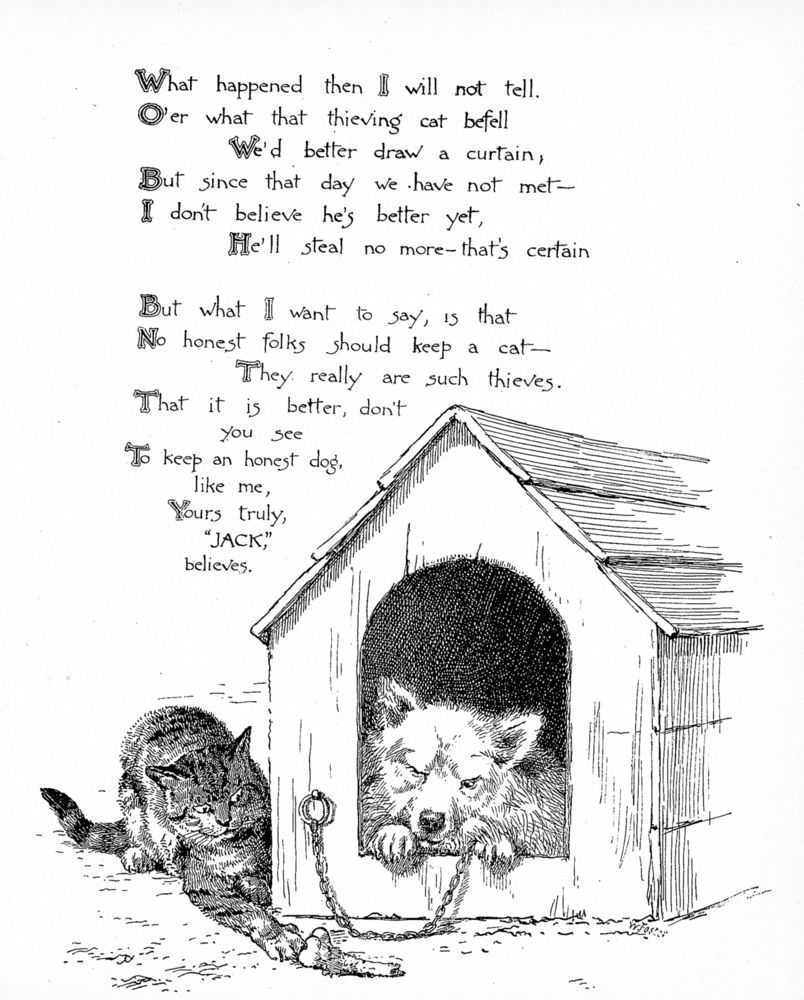 What happened then I will not tell.
O'er what that thieving cat befell
We'd better draw a curtain,
But since that day we have not met—
I don't believe he's better yet,
He'll steal no more—that's certain
But what I want to say, is that
No honest folks should keep a cat—
They really are such thieves.
That it is better, don't
you see
To keep an honest dog,
like me,
Yours truly,
"JACK,"
believes.